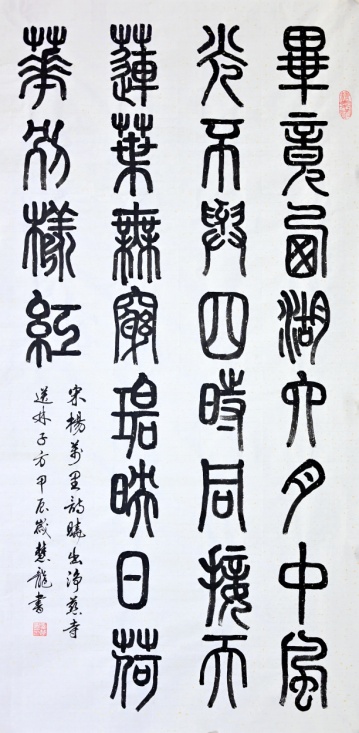 畢竟西湖六月中風
光不與四時同接天
蓮葉無窮碧映日荷
華別樣紅
宋楊萬里詩曉出淨慈寺
送林子方甲辰歲慧龍書